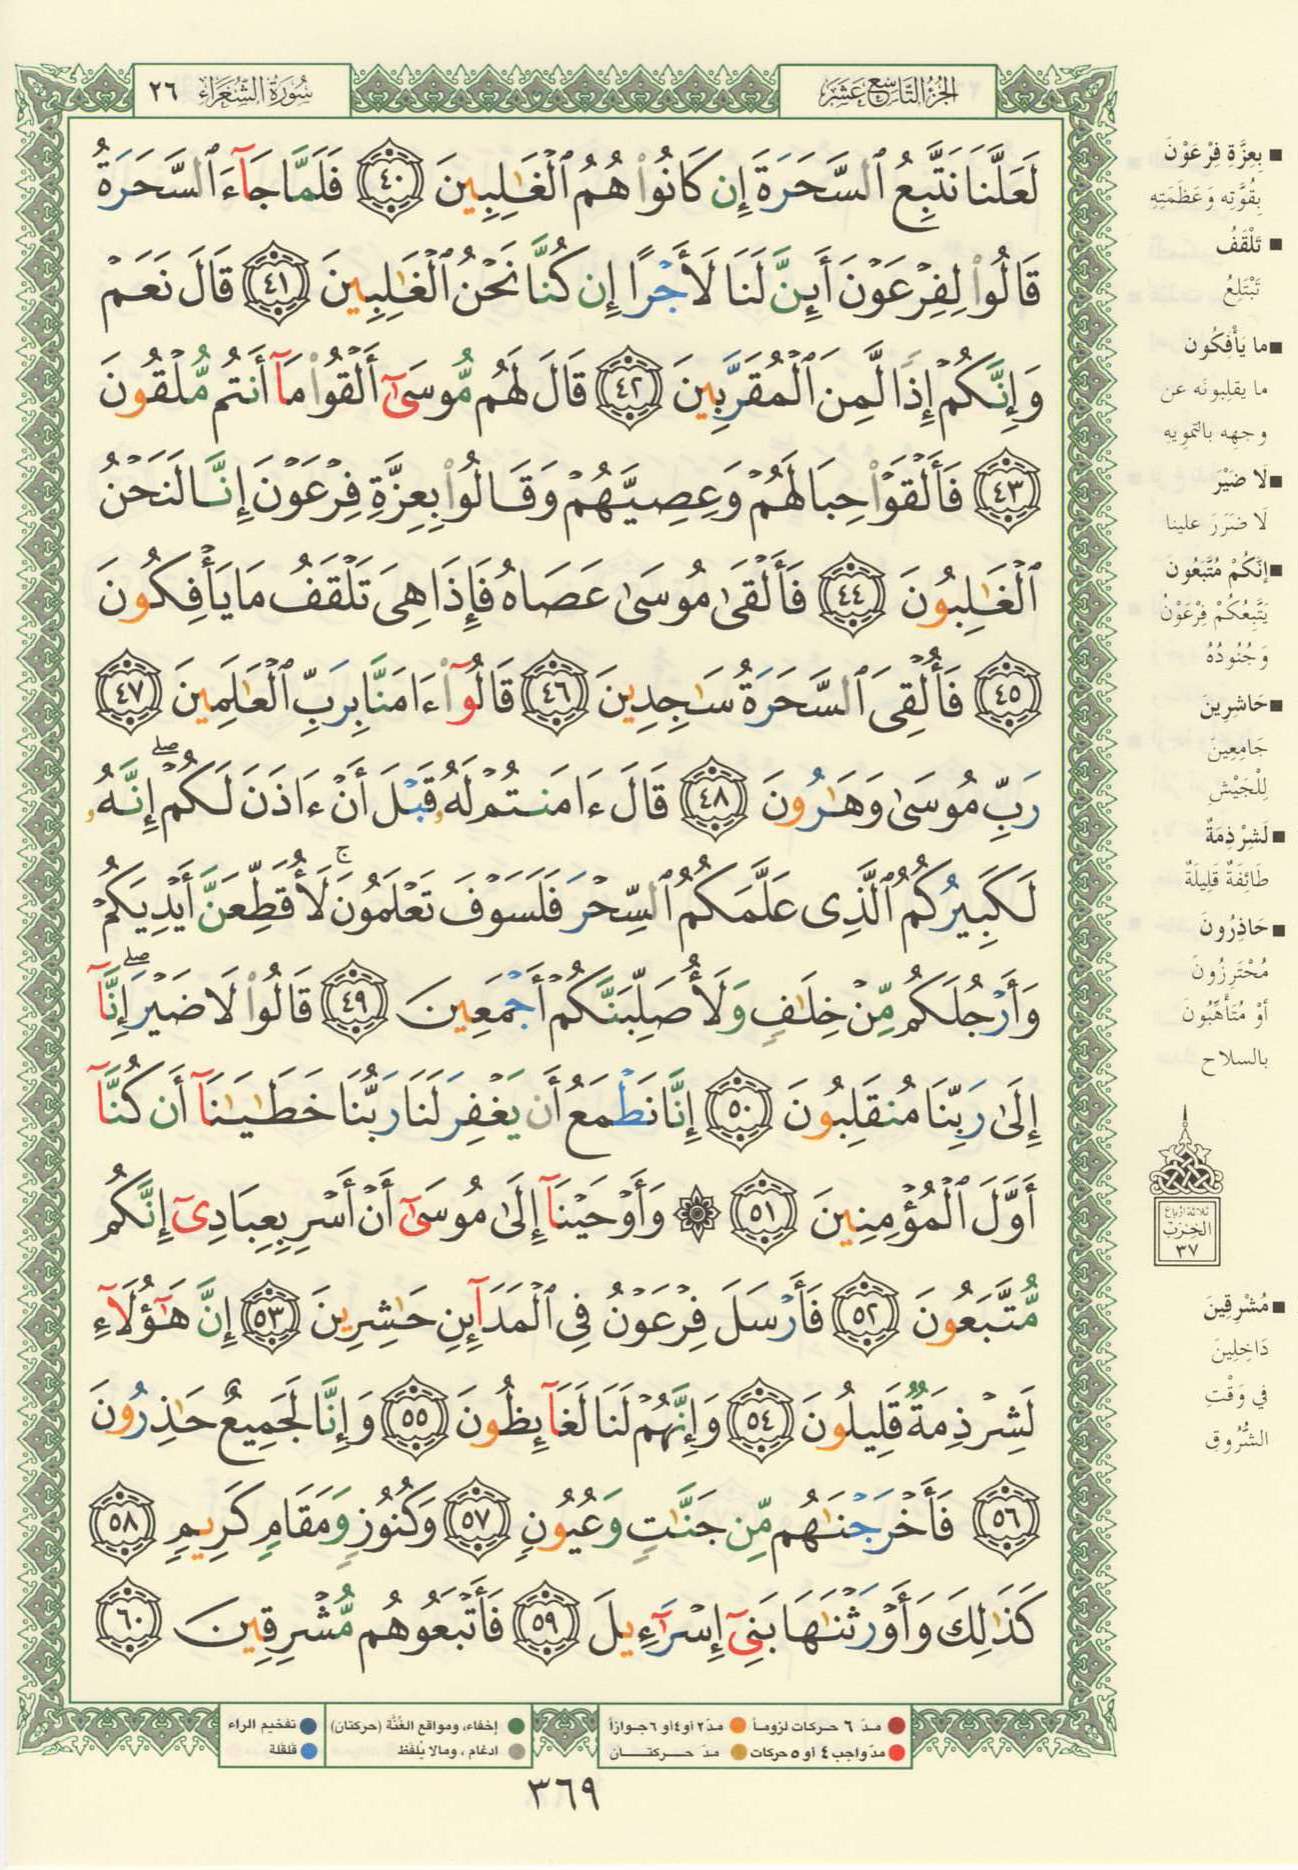 سُورَةُ الشُّعَرَاء ٢٦
الجُزْءُ التَّاسِعَ عَشَرَ
لَعَلَّنَا نَتَّبِعُ ٱلسَّحَرَةَ إِن كَانُوا۟ هُمُ ٱلْغَـٰلِبِينَ ٤٠ فَلَمَّا جَآءَ ٱلسَّحَرَةُ
قَالُوا۟ لِفِرْعَوْنَ أَئِنَّ لَنَا لَأَجْرًا إِن كُنَّا نَحْنُ ٱلْغَـٰلِبِينَ ٤١ قَالَ نَعَمْ
وَإِنَّكُمْ إِذًا لَّمِنَ ٱلْمُقَرَّبِينَ ٤٢ قَالَ لَهُم مُّوسَىٰٓ أَلْقُوا۟ مَآ أَنتُم مُّلْقُونَ
٤٣ فَأَلْقَوْا۟ حِبَالَهُمْ وَعِصِيَّهُمْ وَقَالُوا۟ بِعِزَّةِ فِرْعَوْنَ إِنَّا لَنَحْنُ
ٱلْغَـٰلِبُونَ ٤٤ فَأَلْقَىٰ مُوسَىٰ عَصَاهُ فَإِذَا هِىَ تَلْقَفُ مَا يَأْفِكُونَ
٤٥ فَأُلْقِىَ ٱلسَّحَرَةُ سَـٰجِدِينَ ٤٦ قَالُوٓا۟ ءَامَنَّا بِرَبِّ ٱلْعَـٰلَمِينَ ٤٧
رَبِّ مُوسَىٰ وَهَـٰرُونَ ٤٨ قَالَ ءَامَنتُمْ لَهُۥ قَبْلَ أَنْ ءَاذَنَ لَكُمْ ۖ إِنَّهُۥ
لَكَبِيرُكُمُ ٱلَّذِى عَلَّمَكُمُ ٱلسِّحْرَ فَلَسَوْفَ تَعْلَمُونَ ۚ لَأُقَطِّعَنَّ أَيْدِيَكُمْ
وَأَرْجُلَكُم مِّنْ خِلَـٰفٍ وَلَأُصَلِّبَنَّكُمْ أَجْمَعِينَ ٤٩ قَالُوا۟ لَا ضَيْرَ ۖ إِنَّآ
إِلَىٰ رَبِّنَا مُنقَلِبُونَ ٥٠ إِنَّا نَطْمَعُ أَن يَغْفِرَ لَنَا رَبُّنَا خَطَـٰيَـٰنَآ أَن كُنَّآ
أَوَّلَ ٱلْمُؤْمِنِينَ ٥١ ۞ وَأَوْحَيْنَآ إِلَىٰ مُوسَىٰٓ أَنْ أَسْرِ بِعِبَادِىٓ إِنَّكُم
مُّتَّبَعُونَ ٥٢ فَأَرْسَلَ فِرْعَوْنُ فِى ٱلْمَدَآئِنِ حَـٰشِرِينَ ٥٣ إِنَّ هَـٰٓؤُلَآءِ
لَشِرْذِمَةٌ قَلِيلُونَ ٥٤ وَإِنَّهُمْ لَنَا لَغَآئِظُونَ ٥٥ وَإِنَّا لَجَمِيعٌ حَـٰذِرُونَ
٥٦ فَأَخْرَجْنَـٰهُم مِّن جَنَّـٰتٍ وَعُيُونٍ ٥٧ وَكُنُوزٍ وَمَقَامٍ كَرِيمٍ ٥٨
كَذَٰلِكَ وَأَوْرَثْنَـٰهَا بَنِىٓ إِسْرَٰٓءِيلَ ٥٩ فَأَتْبَعُوهُم مُّشْرِقِينَ ٦٠
■ بِعِزَّةِ فِرْعَوْنَ
بِقُوَّتِه وَعَظَمَتِهِ
■ تَلْقَفُ
تَبْتَلِعُ
■ ما يَأْفِكُون
ما يقلِبونَه عن
وجهِه بالتمويهِ
■ لَا ضَيْرَ
لَا ضَرَرَ علينا
■ إنّكُمْ مُتَّبَعُونَ
يَتَّبِعُكُمْ فِرْعَوْنُ
وَجُنُودُهُ
■ حَاشِرِينَ
جَامِعِينَ
لِلْجَيْشِ
■ لَشِرْذِمَةٌ
طَائِفَةٌ قَلِيلَةٌ
■ حَاذِرُونَ
مُحْتَرِزُونَ
أوْ مُتَأَهِّبُونَ
بالسلاح
ثلاثة ارباع
الحِزب
٣٧
■ مُشْرِقِينَ
دَاخِلِينَ
في وَقْتِ
الشُّرُوقِ
مدّ ٦ حركات لزوماً
مدّ ٢ أو ٤ أو ٦ جوازاً
إخفاء، ومواقع الغُنَّة (حركتان)
تفخيم الراء
مدّ واجب ٤ أو ٥ حركات
مدّ حركتان
ادغام ، ومالا يُلفَظ
قلقلة
٣٦٩